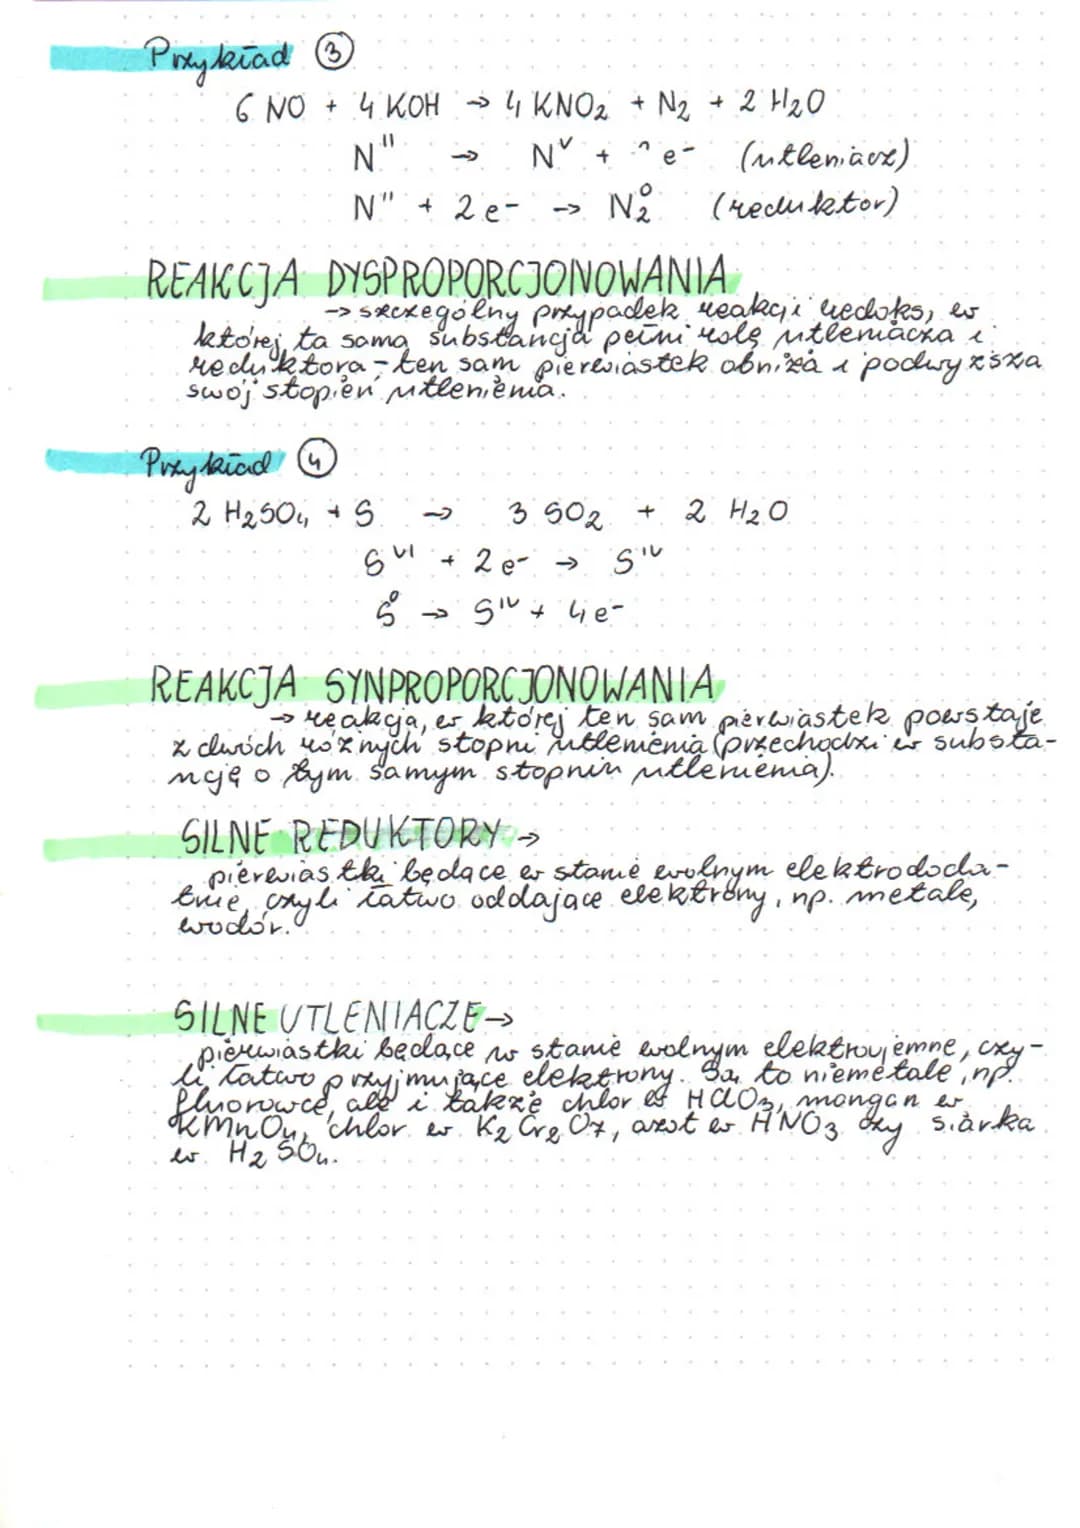 Przykład ③
6 NO + 4 KOH → 4 KNO₂ + N₂ + 2 H₂O
Nᴵᴵ → Nⱽ + e⁻ (utleniacz)
Nᴵᴵ + 2e⁻ → N₂⁰ (reduktor)
REAKCJA DYSPROPORCJONOWANIA
→ szczególny przypadek reakcji redoks, w
której ta sama substancja pełni rolę utleniacza i
reduktora - ten sam pierwiastek obniża i podwyższa
swój stopień utlenienia.
Przykład ④
2 H₂SO₄ + S → 3 SO₂ + 2 H₂O
Sⱽᴵ + 2e⁻ → Sᴵⱽ
S⁰ → Sᴵⱽ + 4e⁻
REAKCJA SYNPROPORCJONOWANIA
→ reakcja, w której ten sam pierwiastek powstaje
z dwóch różnych stopni utlenienia (przechodzi w substa-
ncję o tym samym stopniu utlenienia).
SILNE REDUKTORY →
pierwiastki będące w stanie wolnym elektrododa-
tnie, czyli łatwo oddające elektrony, np. metale,
wodór.
SILNE UTLENIACZE →
pierwiastki będące w stanie wolnym elektroujemne, czy-
li łatwo przyjmujące elektrony. Są to niemetale, np.
fluorowce, ale i także chlor w HClO₃, mangan w
KMnO₄, chlor w K₂Cr₂O₇, azot w HNO₃ czy siarka
w H₂SO₄.